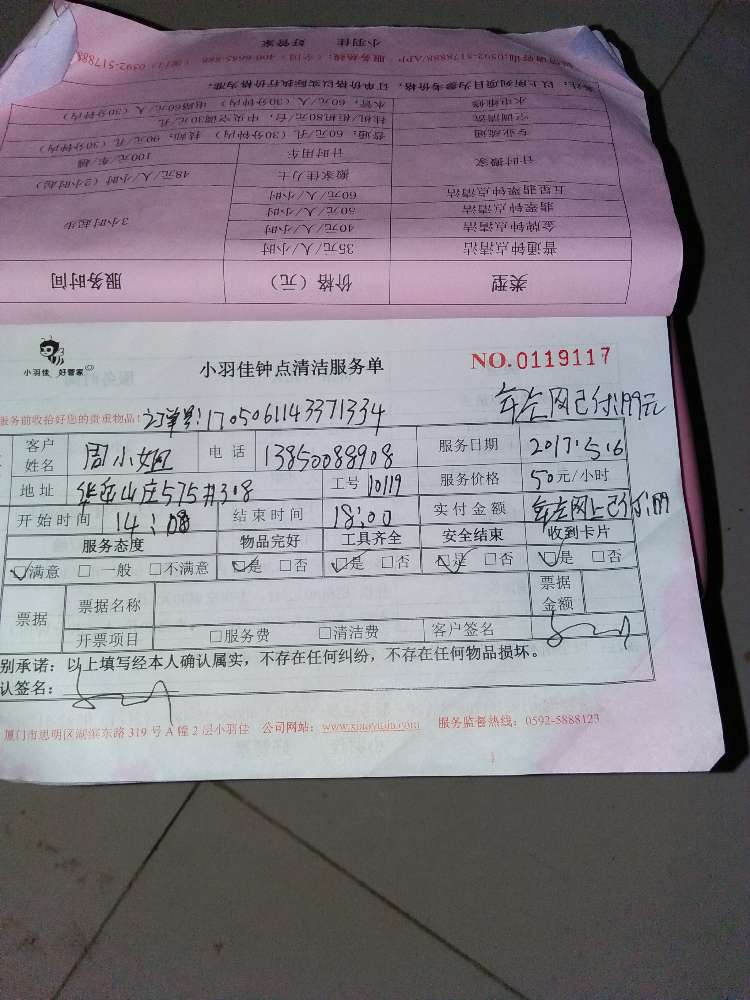 小羽佳 好管家
服务咨询电话:0592-5178888/APP 服务热线:(全国)400-6685-888 (厦门)0592-517888
备注:以上所列项目为参考价格,订单价格以实际执行价格为准。
水电维修 水管:60元/人(30分钟内) 电路60元/人(30分钟内)
空调清洗 挂机/柜机80元/台,中央空调30元/孔
专业疏通 普通:60元/孔(30分钟内) 技师:90元/孔(30分钟内)
计时搬家 计时用车 100元/车/趟
搬家佳力士 48元/人/小时(2小时起)
五星翡翠钟点清洁 60元/人/小时
翡翠钟点清洁 50元/人/小时
金牌钟点清洁 40元/人/小时 3小时起步
普通钟点清洁 35元/人/小时
类型 价格(元) 服务时间
小羽佳 好管家
小羽佳钟点清洁服务单 NO.0119117
服务前收拾好您的贵重物品! 订单号:1705061143371334 网已付:199元
客户姓名 周小姐 电话 13850088908 服务日期 2017.5.6
地址 山庄575#308 工号 10119 服务价格 50元/小时
开始时间 14:08 结束时间 18:00 实付金额 网上已付:199
服务态度 物品完好 工具齐全 安全结束 收到卡片
☑满意 □一般 □不满意 ☑是 □否 ☑是 □否 ☑是 □否 ☑是 □否
票据 票据名称 票据金额
开票项目 □服务费 □清洁费 客户签名
别承诺:以上填写经本人确认属实,不存在任何纠纷,不存在任何物品损坏。
认签名:
厦门市思明区湖滨东路319号A幢2层小羽佳 公司网站:www.xiaoyujia.com 服务监督热线:0592-5888123